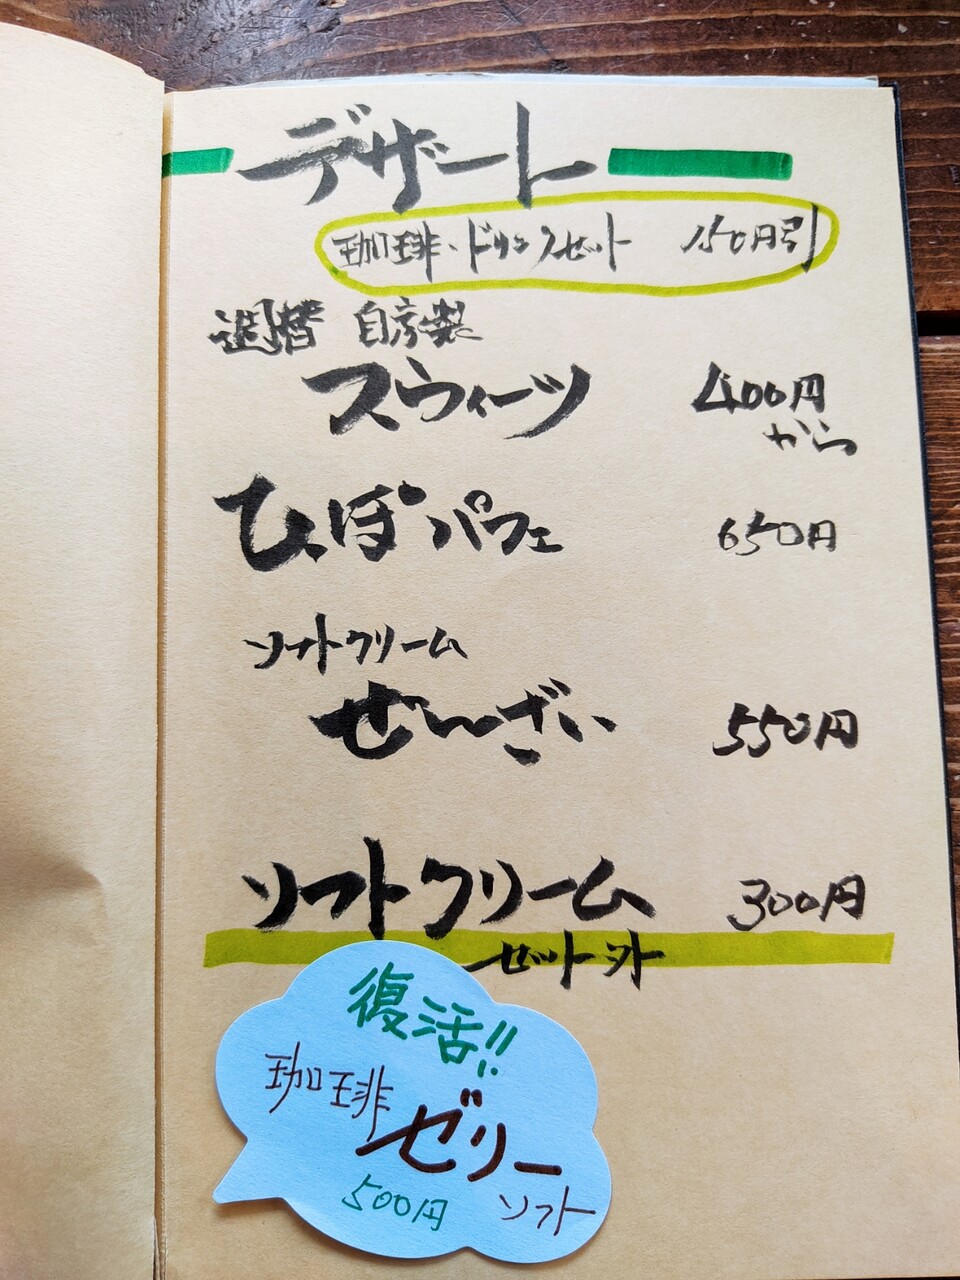 デザート
珈琲・ドリンクセット 150円引
週替 自家製
スウィーツ 400円
から
ひぽパフェ 650円
ソフトクリーム
ぜんざい 550円
ソフトクリーム 300円
セット外
復活!!
珈琲
ゼリー
ソフト
500円